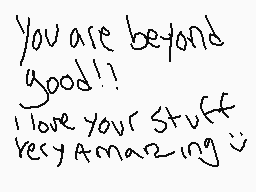 You are beyond
good!!
i love your stuff
very Amazing :)